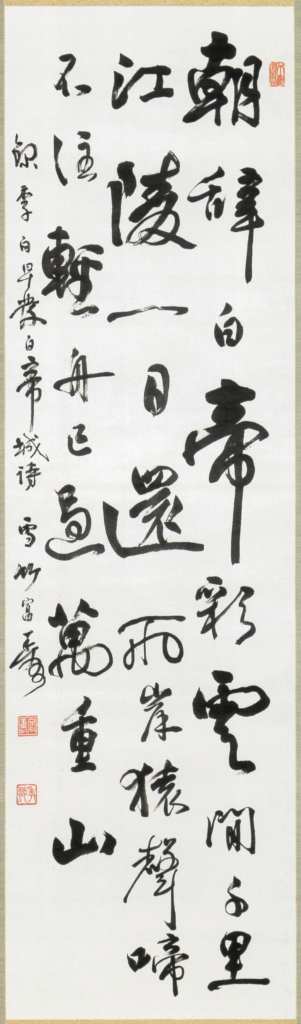 朝辞白帝彩雲間千里
江陵一日還兩岸猿聲啼
不住輕舟已過萬重山
錄李白早發白帝城詩 雪竹富